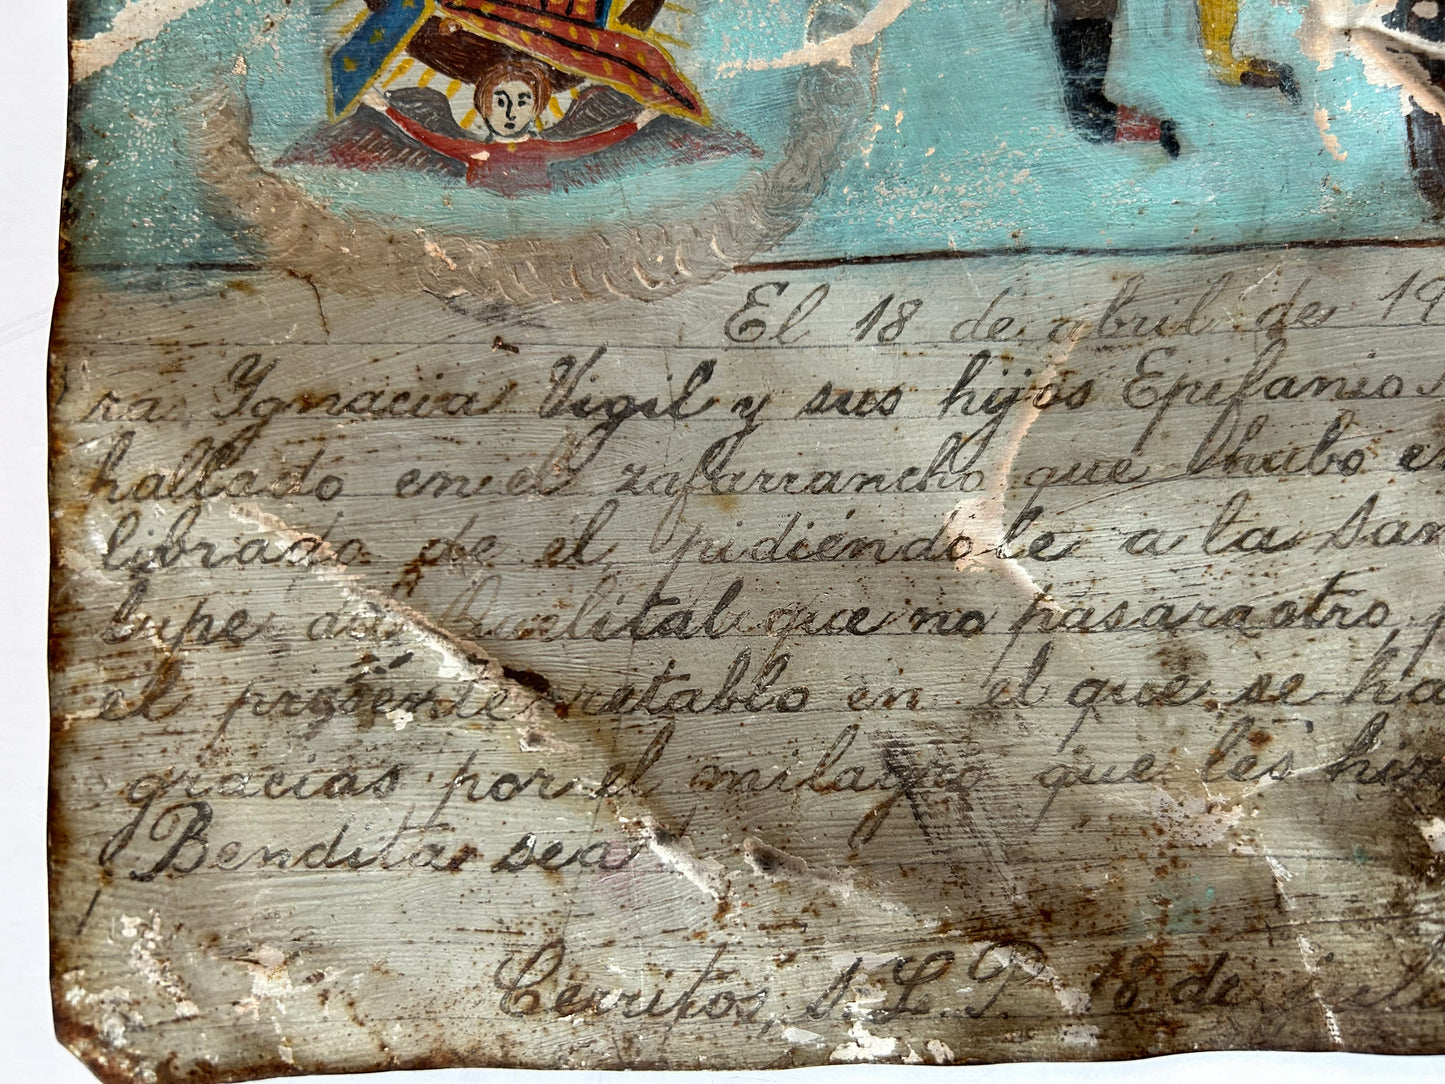 El 18 de abril de 19
ra Ygnacia Vigil y sus hijos Epifanio
hallado en el zafarrancho que hubo e
librado de el, pidiéndole a la San
lupe del Quelital que no pasara otro, p
el presente retablo en el que se ha
gracias por el milagro que les hiz
Bendita sea
Cerritos, S.L.P. 18 de julio